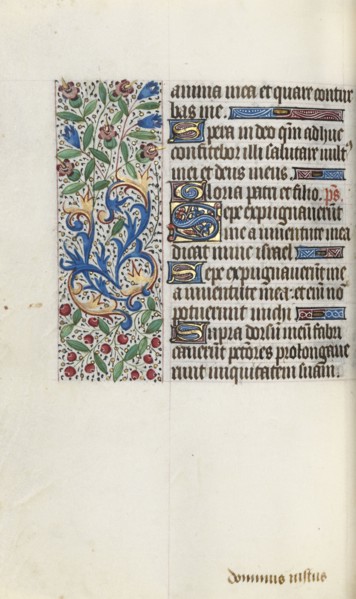 anima mea et quare contur
bas me.
Spera in deo qm̄ adhuc
confitebor illi salutare vult⁹
mei et deus meus.
Gloria patri et filio. p̄s.
Sepe expugnaverunt
me a iuventute mea
dicat nunc israel
Sepe expugnaverunt me
a iuventute mea: etenim nō
potuerunt michi
Supra dorsū meū fabri
caverunt p̄ctores prolongave
runt iniquitatem suam.
dominus iustus